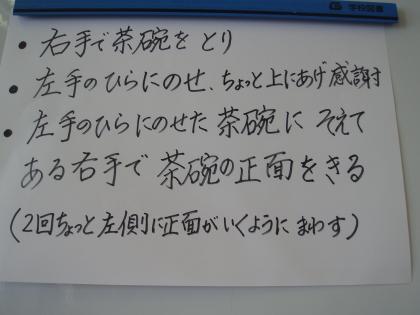 学校図書
• 右手で茶碗を とり
• 左手のひらにのせ、ちょっと上にあげ感謝
• 左手のひらにのせた 茶碗に そえて
ある右手で 茶碗の正面をきる
(2回ちょっと左側に正面がいくように まわす)